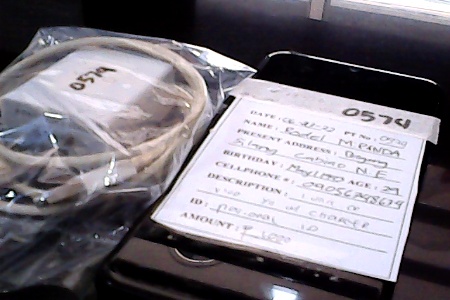 0574
0574
DATE: PT No.: 0574
NAME: Rodel MIRANDA
PRESENT ADDRESS: Bagong
Sikang Cabiao N.E
BIRTHDAY: AGE: 29
CELLPHONE #: 09056248679
DESCRIPTION:
Vivo w/ CHARGER
ID: personal ID
AMOUNT: ₱ 1,000